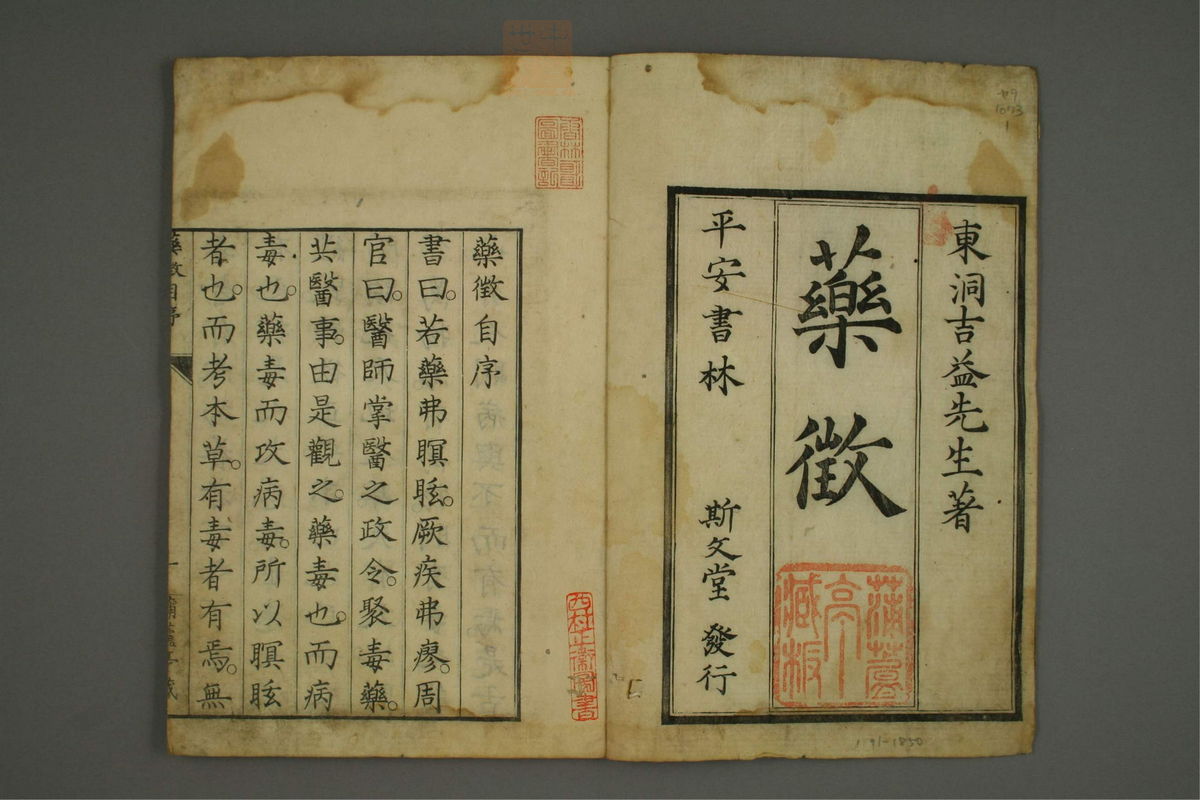 東洞吉益先生著
藥徵
平安書林 斯文堂 發行
藥徵自序
書曰。若藥弗瞑眩。厥疾弗瘳。周
官曰。醫師掌醫之政令。聚毒藥。
共醫事。由是觀之。藥毒也。而病
毒也。藥毒而攻病毒。所以瞑眩
者也。而考本草。有毒者有焉。無
藥徵自序
西村正衞圖書